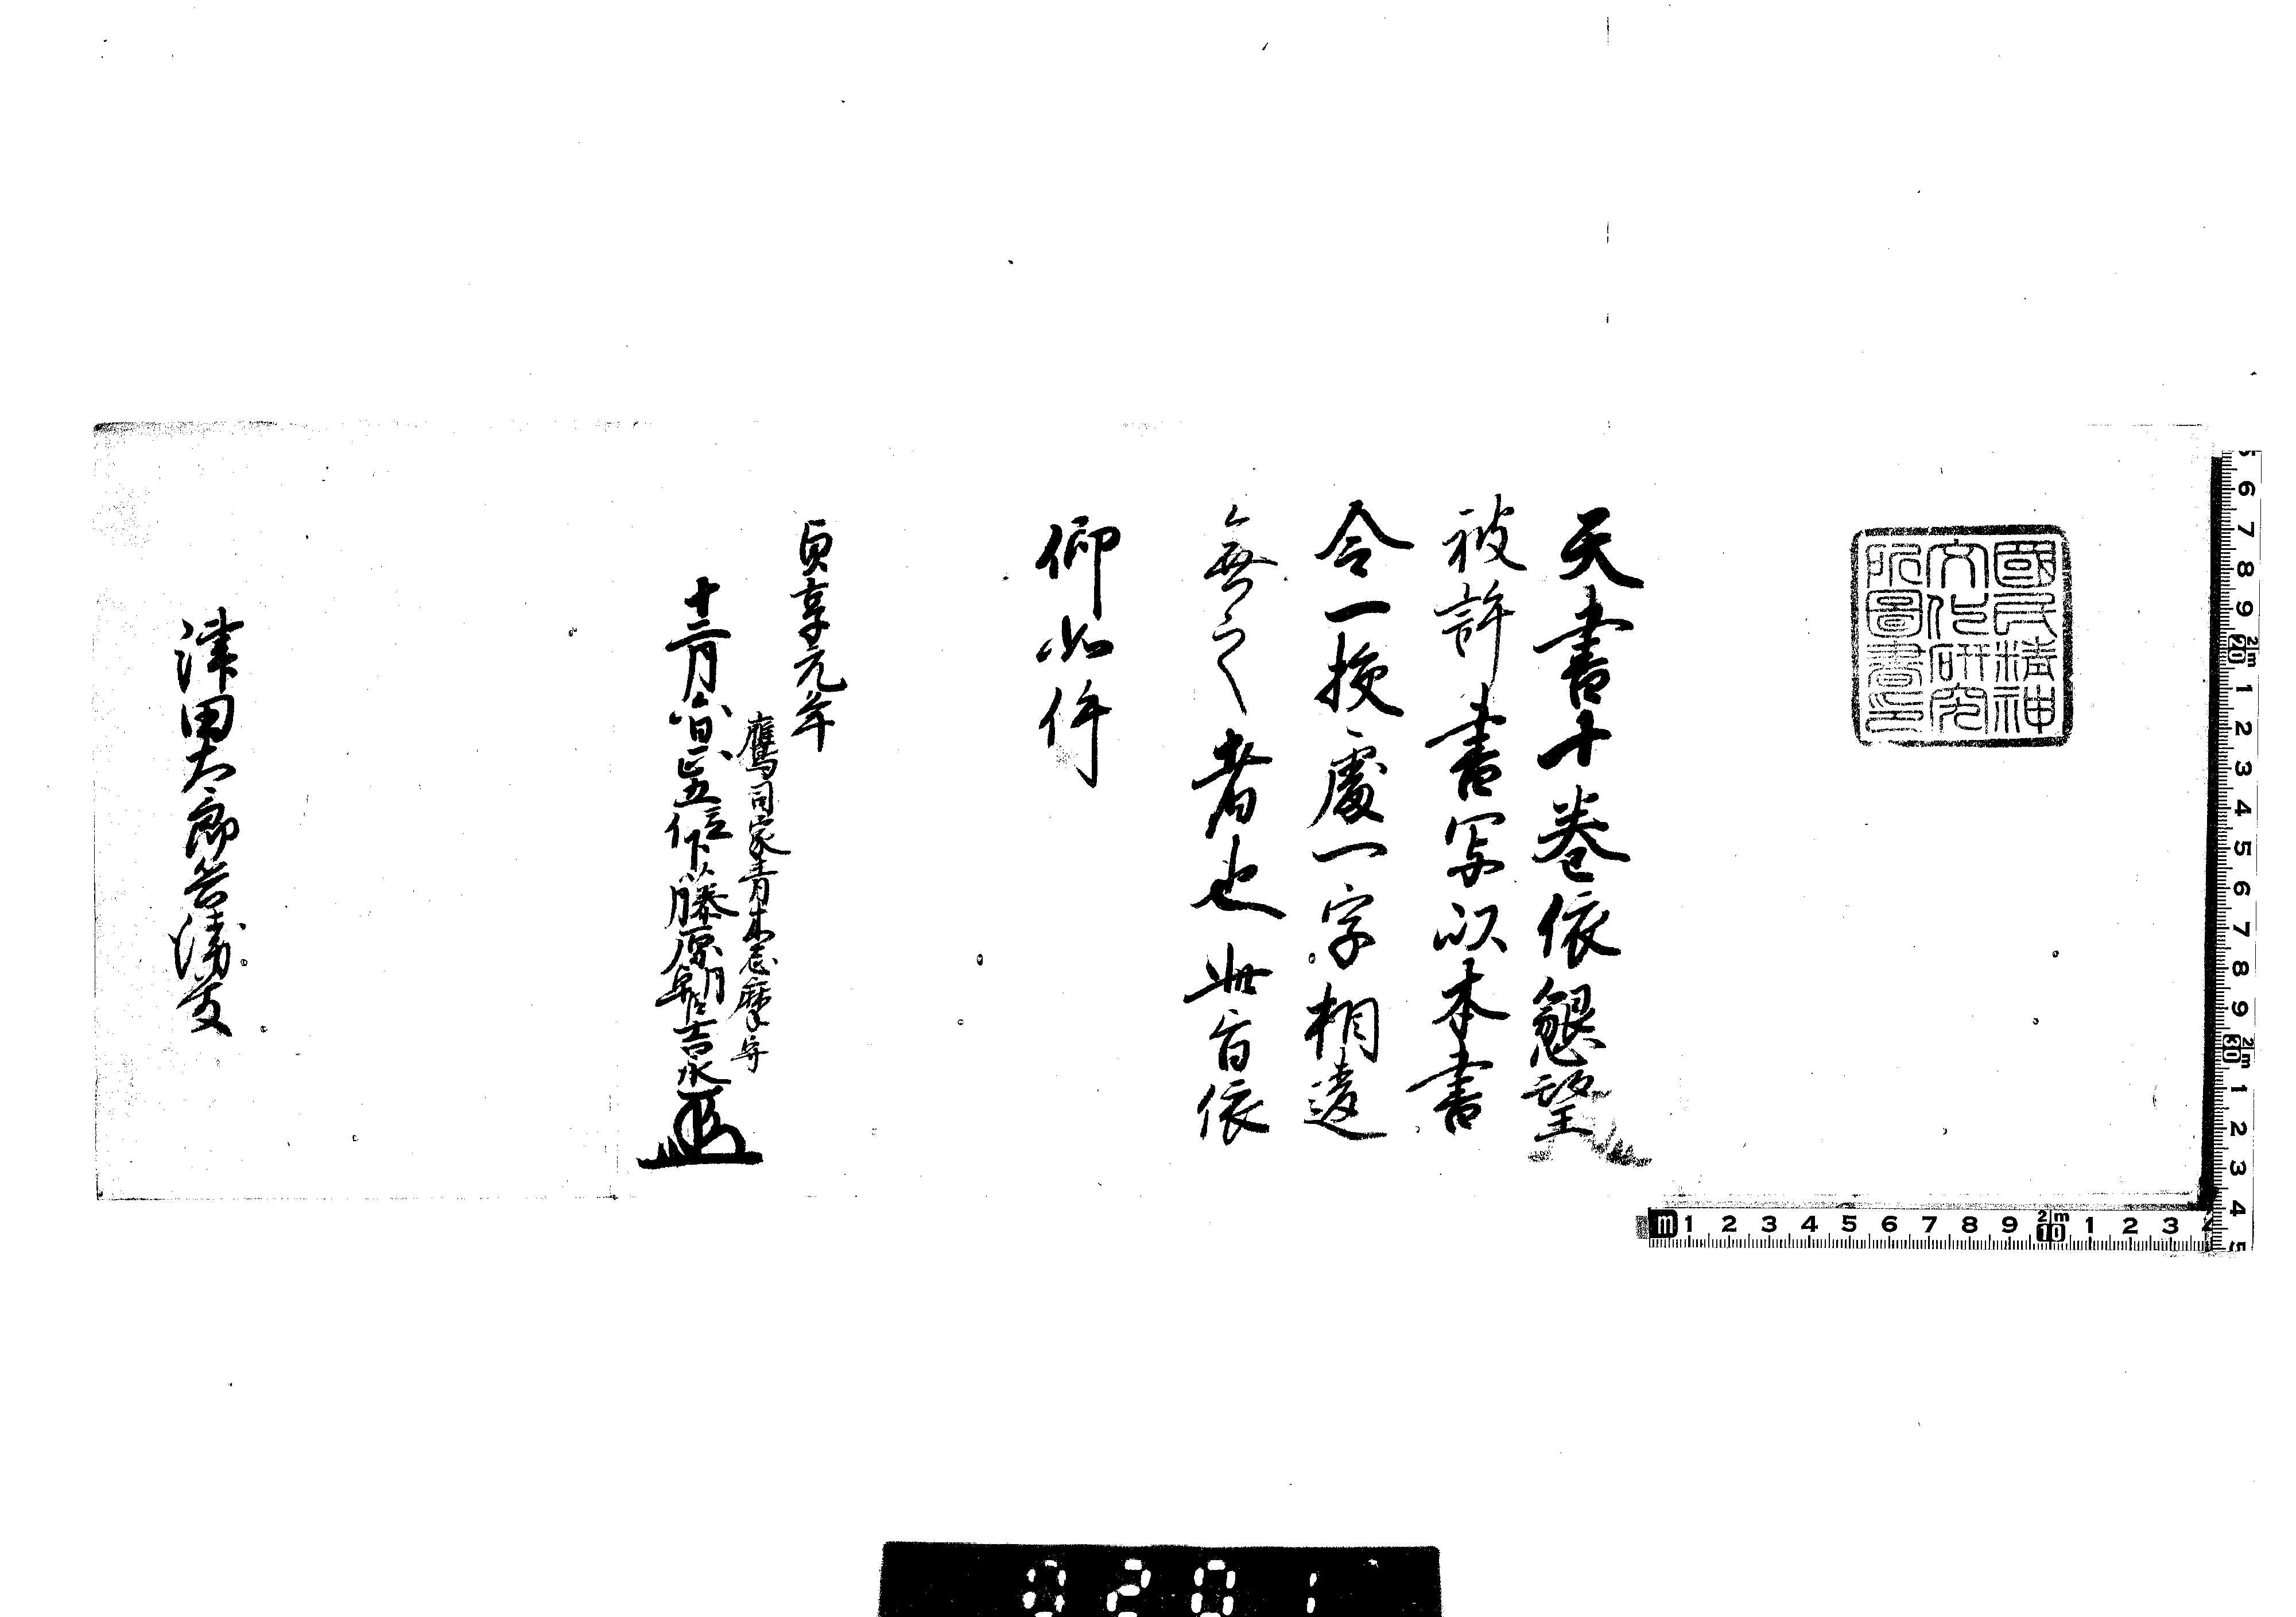 國民精神
文化研究
所圖書印
天書十巻依懇望
被許書写以本書
令一挍處一字相違
無之者也此旨依
仰如件
貞享元年
鷹司家青木志摩守
十二月六日正五位下藤原朝臣吉永
津田太郎兵衛
m 1 2 3 4 5 6 7 8 9 10 1 2 3
5 6 7 8 9 20 1 2 3 4 5 6 7 8 9 30 1 2 3 4 5
0201